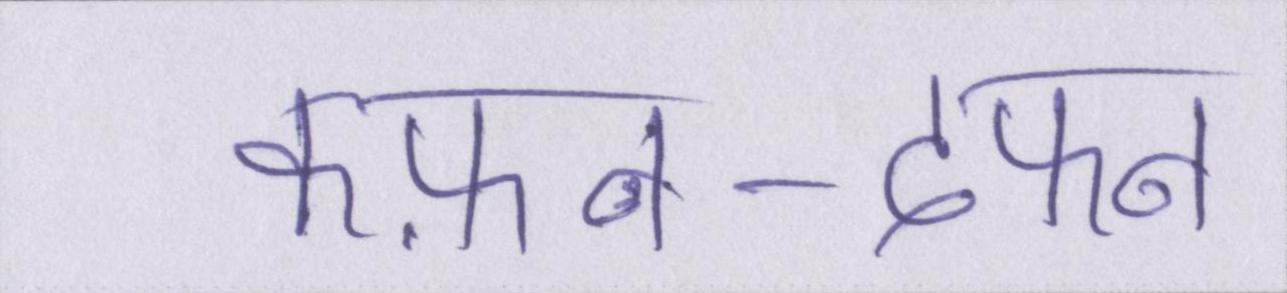 कफ़न-दफन